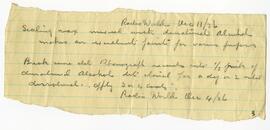 Radio World Dec 11/26
Sealing wax mixed with denatured Alcohol
makes an excellent paint for various purposes
Break some old Phonograph records into 1/2 pint of
denatured Alcohol let stand for a day or until
dissolved. Apply 3 or 4 coats.
Radio World Dec 4/26